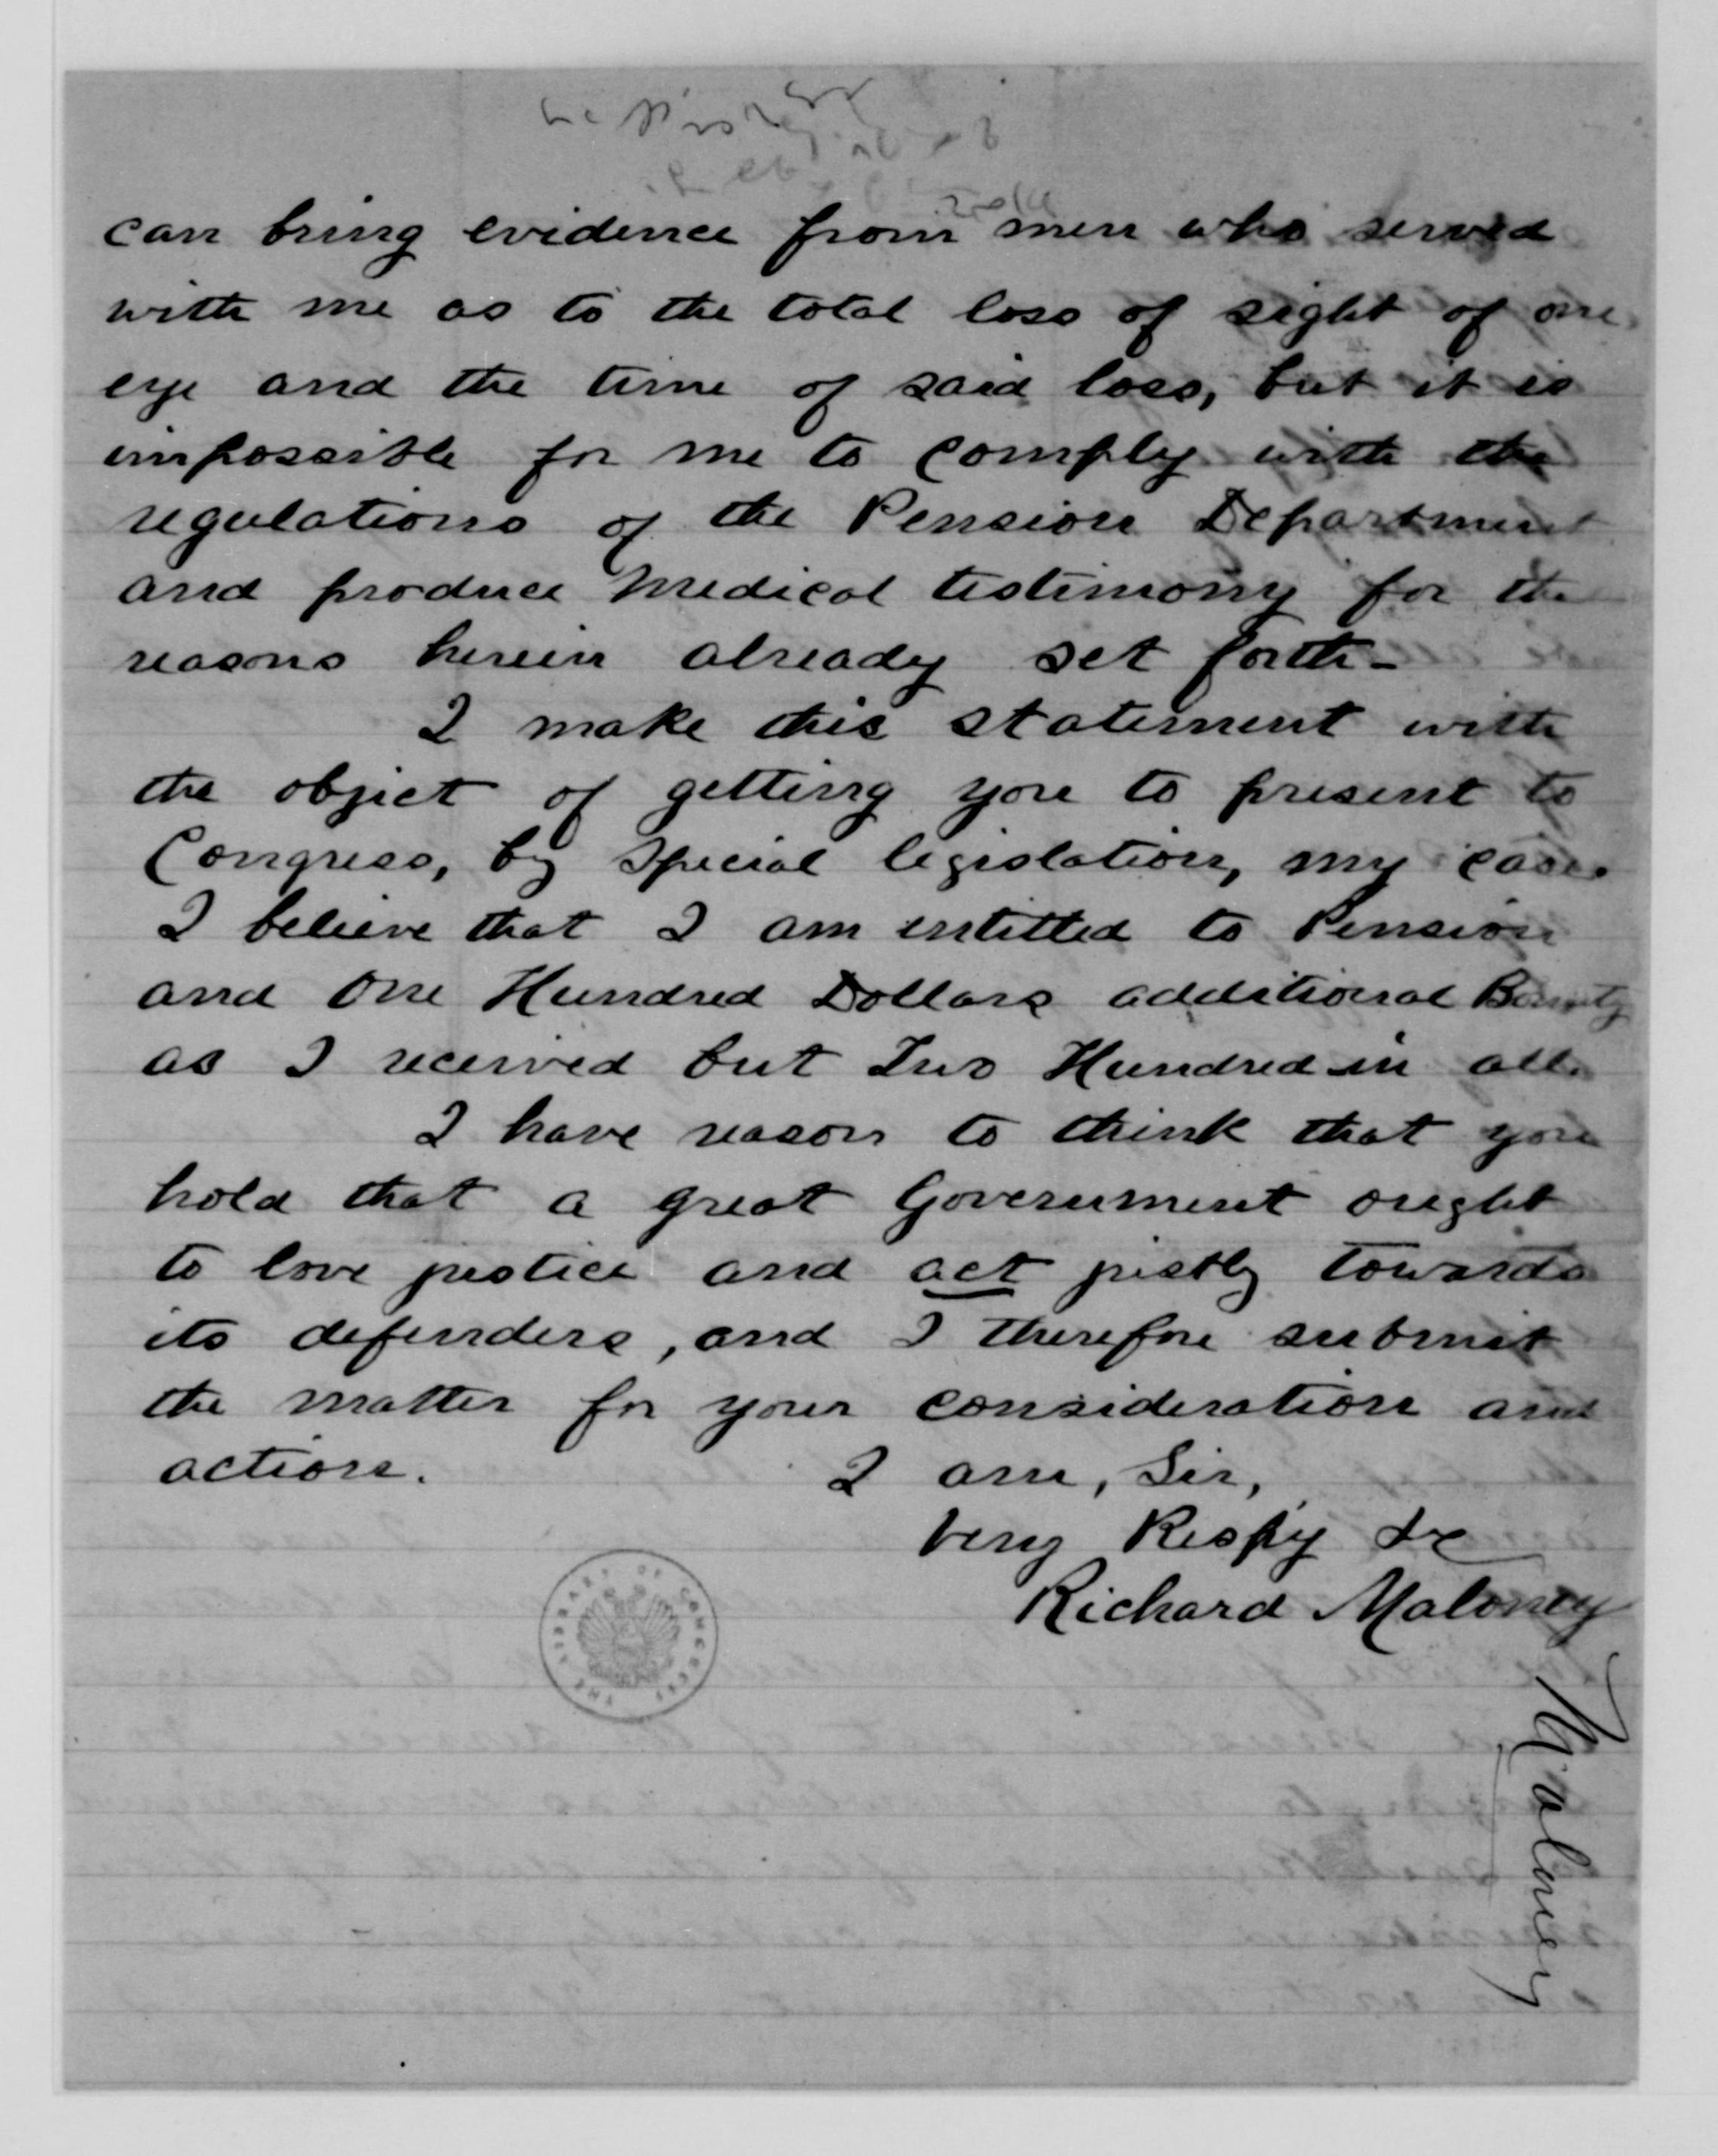 can bring evidence from men who served
with me as to the total loss of sight of one
eye and the time of said loss, but it is
impossible for me to comply with the
regulations of the Pension Department
and produce Medical testimony for the
reasons herein already set forth-
I make this statement with
the object of getting you to present to
Congress, by special legislation, my case.
I believe that I am entitled to Pension
and One Hundred Dollars additional Bounty
as I received but Two Hundred in all.
I have reason to think that you
hold that a great Government ought
to love justice and act justly towards
its defenders, and I therefore submit
the matter for your consideration and
action. I am, Sir,
Very Respy &c
Richard Maloney
Maloney
THE LIBRARY OF CONGRESS